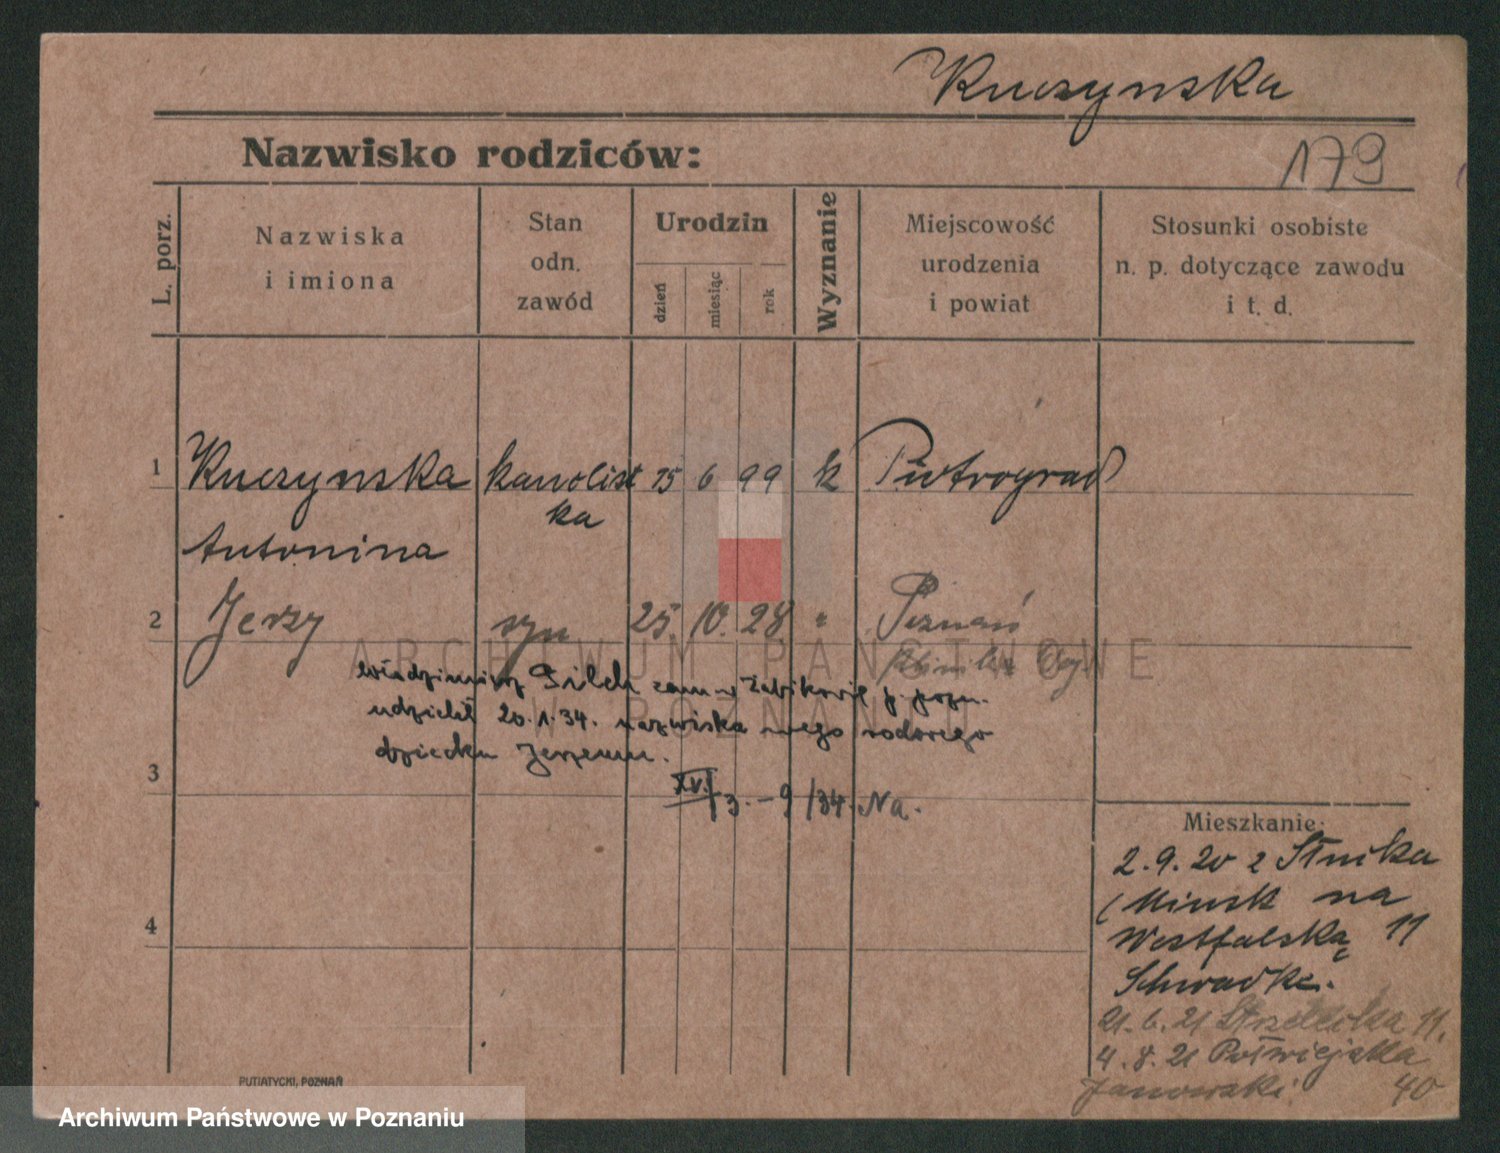 Kuczynska
Nazwisko rodziców:
179
L. porz.
Nazwiska
i imiona
Stan
odn.
zawód
Urodzin
dzień
miesiąc
rok
Wyznanie
Miejscowość
urodzenia
i powiat
Stosunki osobiste
n. p. dotyczące zawodu
i t. d.
1 Kuczynska 15 6 99 k Piotrograd
ka
Antonina
2 Jerzy syn 25. 10. 28 " Poznań
ARCHIWUM PAŃSTWOWE
W POZNANIU
Władzimierz zam. w Żabikowie p. pozn.
udzielił 20.1.34. nazwiska swego rodowego
dziecku Jerzemu.
XV./3. - 9/34. Na.
3
4
Mieszkanie:
2.9.20 z Słucka
(Minsk na
Westfalską 11
Schwadke.
21.6.21 Strzelecka 11.
4.8.21 Półwiejska
Janowski. 40
PUTIATYCKI, POZNAŃ
Archiwum Państwowe w Poznaniu